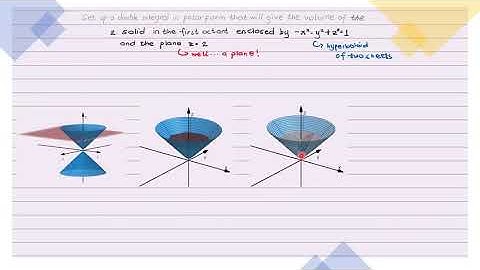 Set up a double integral in polar form that will give the volume of the
solid in the first octant enclosed by -x²-y²+z²=1
and the plane z=2
↳ hyperboloid
of two sheets
↳ well...a plane!